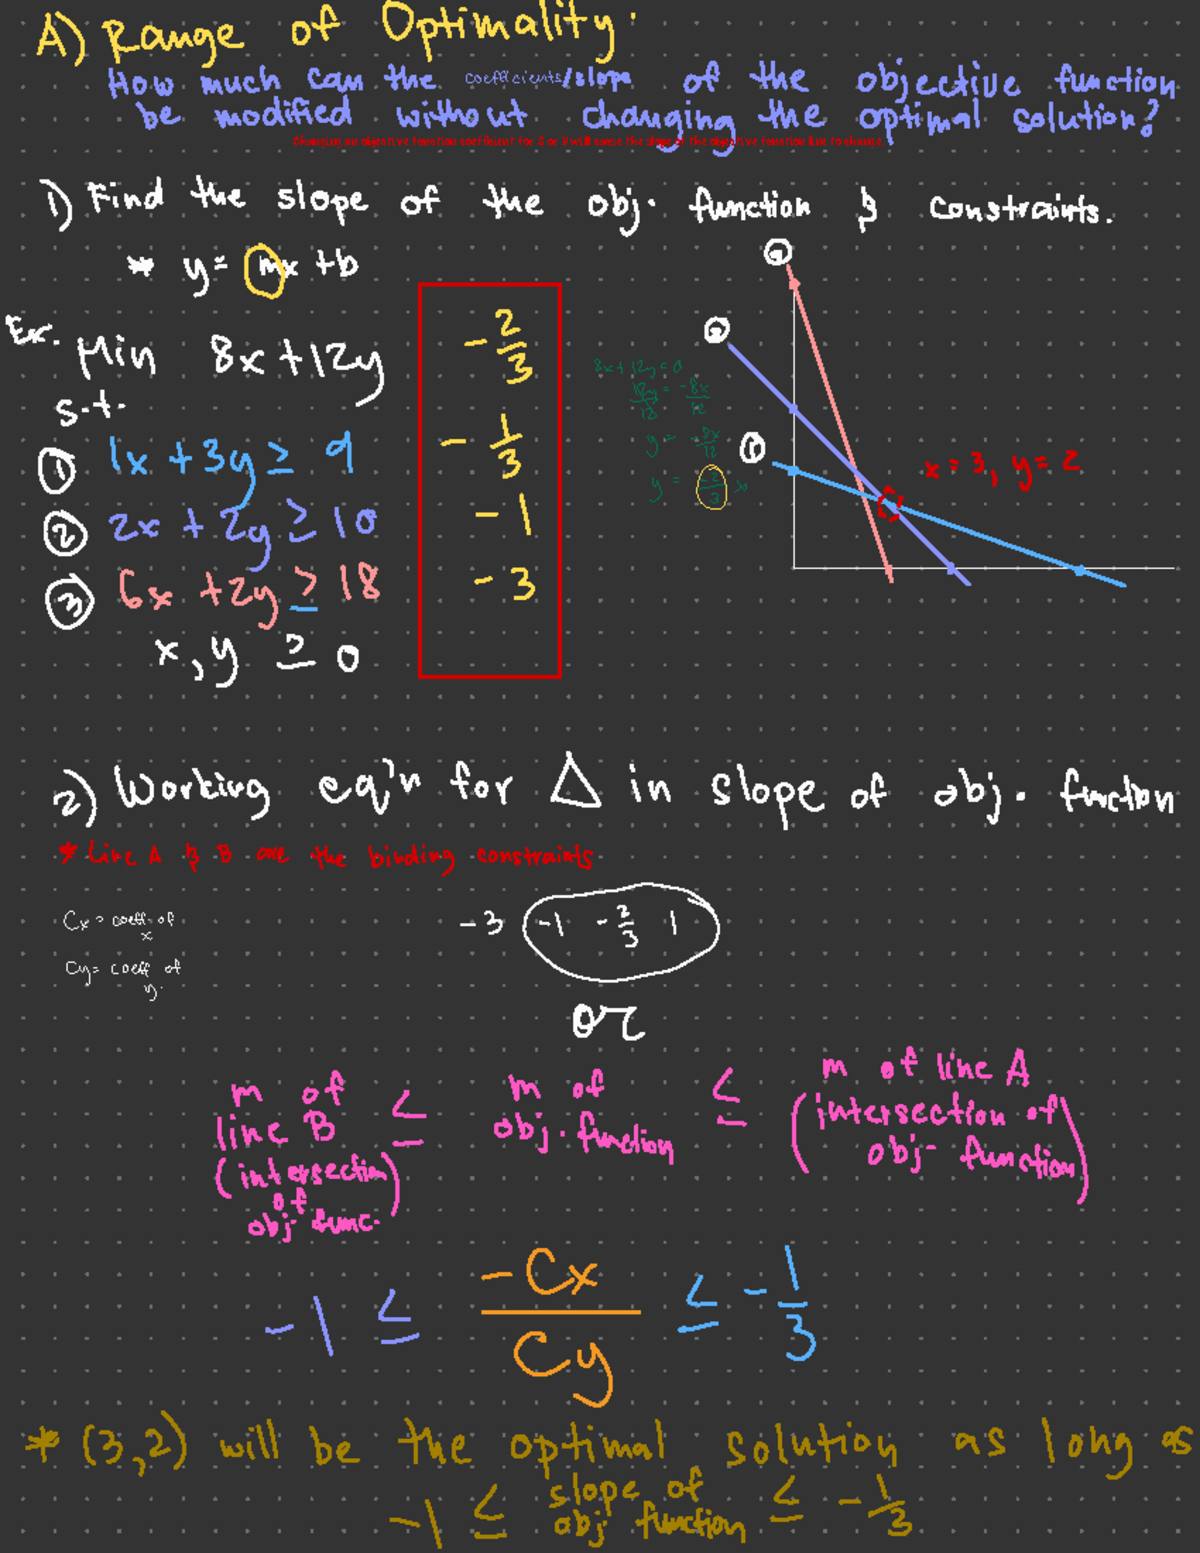 A) Range of Optimality.
How much can the coefficients/slope of the objective function
be modified without changing the optimal solution?
Changing an objective function coefficient for X or Y will cause the slope of the objective function line to change.
1) Find the slope of the obj. function & constraints.
* y = mx + b
Ex. Min 8x + 12y
- 2/3
s.t.
① 1x + 3y ≥ 9
- 1/3
② 2x + 2y ≥ 10
- 1
③ 6x + 2y ≥ 18
- 3
x, y ≥ 0
8x + 12y = 0
12y/12 = -8x/12
y = -8x/12
y = -2/3 x
①
x = 3, y = 2
2) Working eq'n for Δ in slope of obj. function
* Line A & B are the binding constraints
Cx = coeff. of x
Cy = coeff of y.
-3 -1 -2/3 1
or
m of line B (intersection of obj. func. ≤ m of obj. function ≤ m of line A (intersection of obj. function)
-1 ≤ -Cx/Cy ≤ -1/3
* (3,2) will be the optimal solution as long as
-1 ≤ slope of obj function ≤ -1/3